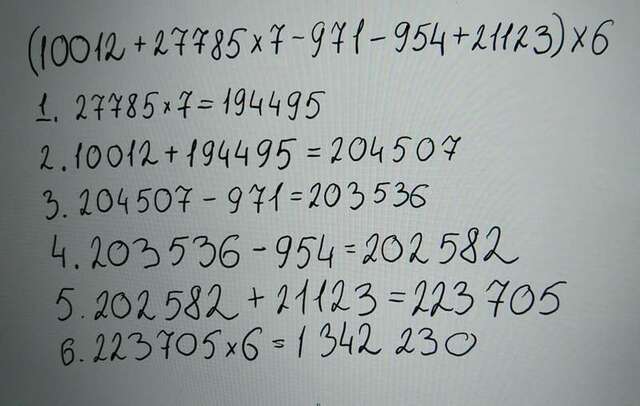 (10012+27785×7-971-954+21123)×6
1. 27785×7=194495
2. 10012+194495=204507
3. 204507-971=203536
4. 203536-954=202582
5. 202582+21123=223705
6. 223705×6=1342230